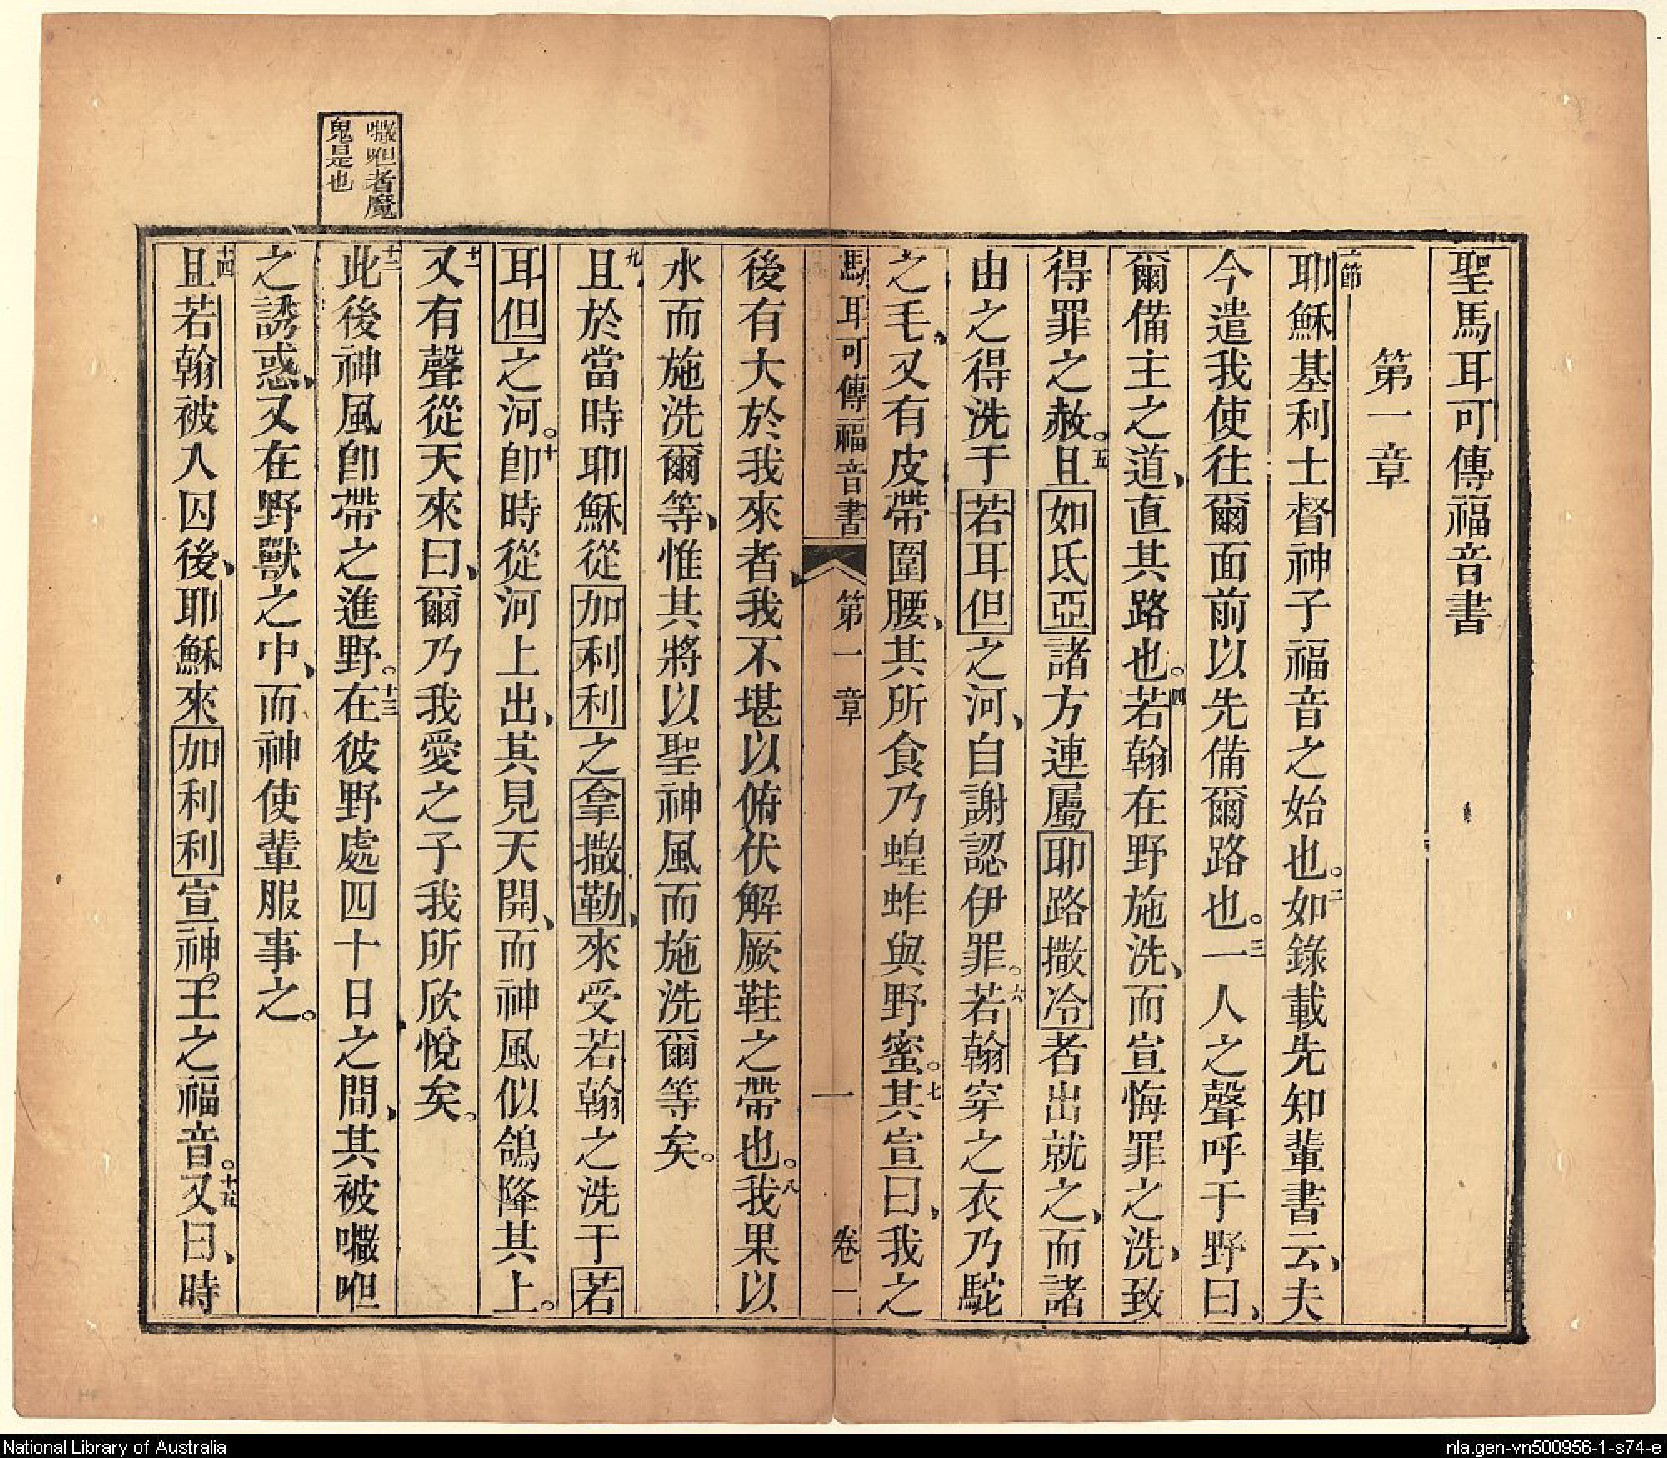 聖馬耳可傳福音書
第一章
一節
耶穌基利士督神子福音之始也。二如錄載先知輩書云、夫
今遣我使往爾面前以先備爾路也。三一人之聲呼于野曰、
爾備主之道、直其路也。四若翰在野施洗、而宣悔罪之洗、致
得罪之赦。五且如氐亞諸方連屬耶路撒冷者出就之、而諸
由之得洗于若耳但之河、自謝認伊罪。六若翰穿之衣乃駝
之毛、又有皮帶圍腰、其所食乃蝗蚱與野蜜。七其宣曰、我之
馬耳可傳福音書 第一章 一 卷一
後有大於我來者、我不堪以俯伏解厥鞋之帶也。八我果以
水而施洗爾等、惟其將以聖神風而施洗爾等矣。
九且於當時耶穌從加利利之拿撒勒、來受若翰之洗于若
耳但之河。十卽時從河上出、其見天開、而神風似鴿降其上。
十一又有聲從天來曰、爾乃我愛之子我所欣悅矣。
十二此後神風卽帶之進野。十三在彼野處四十日之間、其被㘔呾
之誘惑、又在野獸之中、而神使輩服事之。
十四且若翰被人囚後、耶穌來加利利宣神。王之福音。十五又曰、時
㘔呾者魔
鬼是也
National Library of Australia
nla.gen-vn500956-1-s74-e